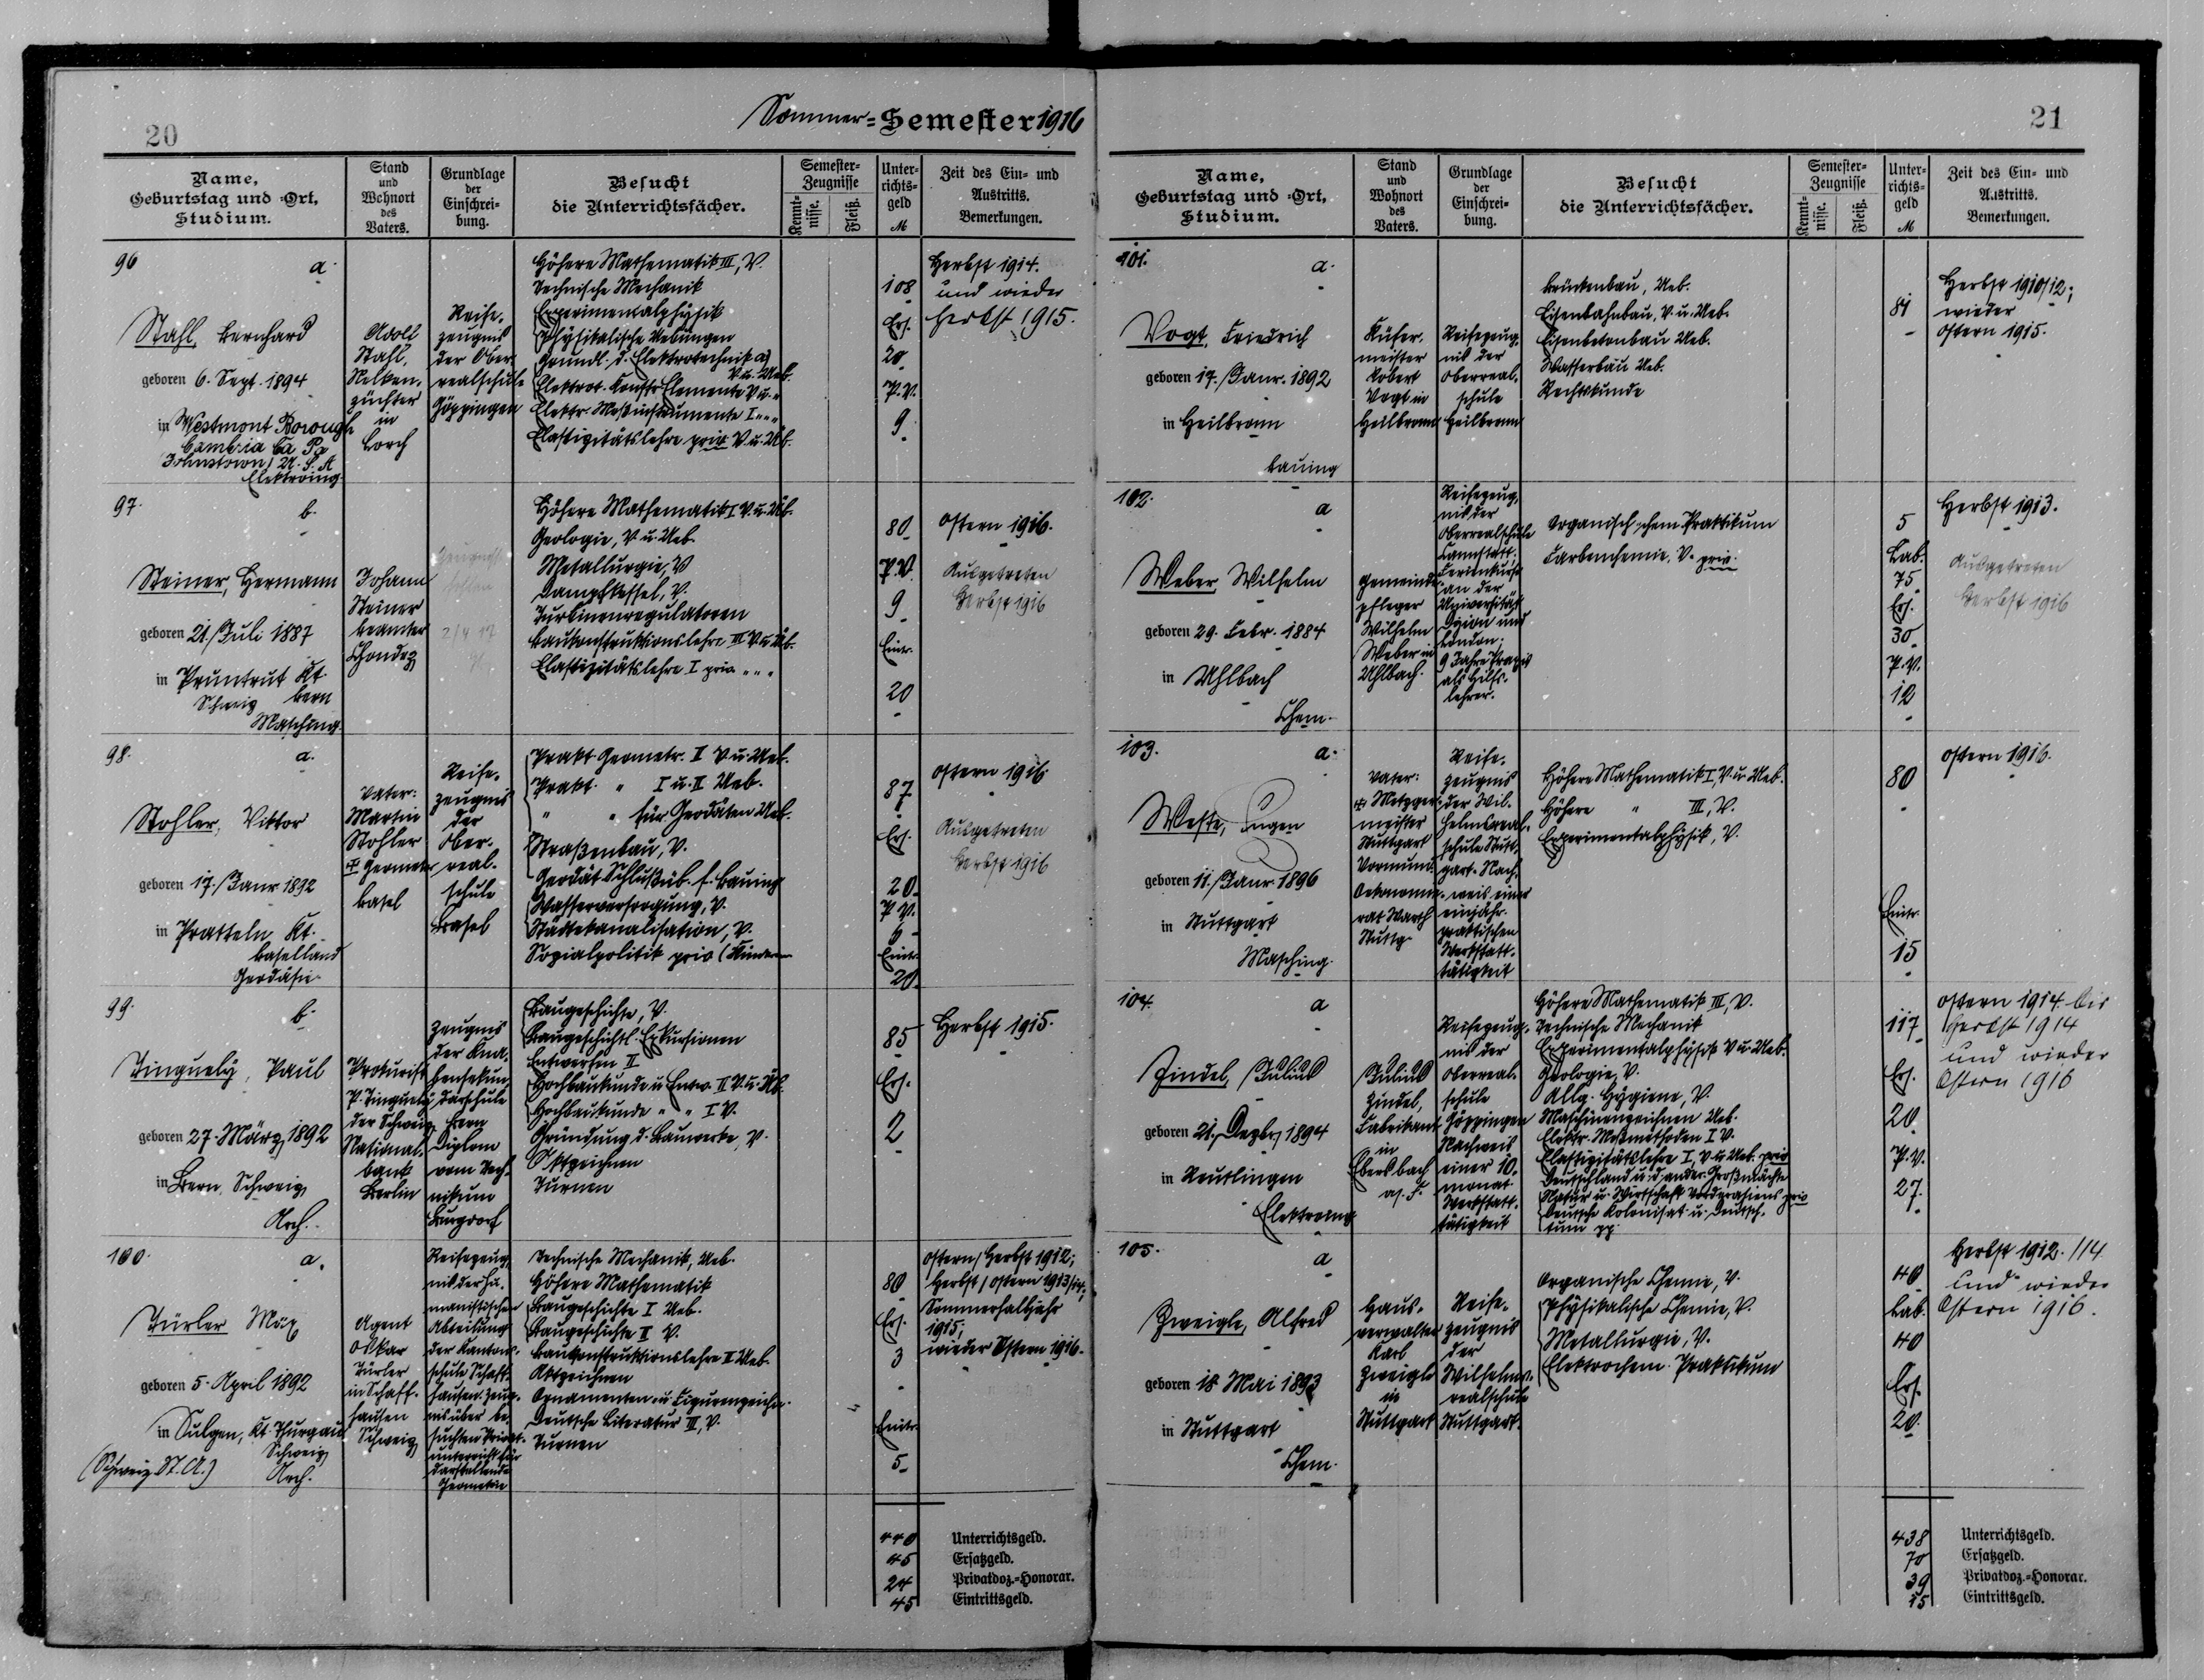 20
Sommer-Semester 1916
Name,
Geburtstag und -Ort,
Studium.
Stand
und
Wohnort
des
Vaters.
Grundlage
der
Einschrei-
bung.
Besucht
die Unterrichtsfächer.
Semester-
Zeugnisse
Kennt-
nisse.
Fleiß.
Unter-
richts-
geld
M
Zeit des Ein- und
Austritts.
Bemerkungen.
96
a.
Stahl, Bernhard
geboren 6. Sept. 1894
in Westmont Borough
Cambria Ca Pa
Johnstown, U.S.A
Elektroing.
Adolf
Stahl,
Nelken-
züchter
in
Lorch
Reife-
zeugnis
der Ober-
realschule
Göppingen
Höhere Mathematik III, V.
Technische Mechanik
Experimentalphysik
Physikalische Uebungen
Grundl. d. Elektrotechnik a)
V. u. Ueb.
Elektrot. Konstr. Elemente V u. "
Elektr. Meßinstrumente I " " "
Elastizitätslehre priv V. u. Üb.
108
Ers.
20
P.V.
9
Herbst 1914.
und wieder
Herbst 1915.
97.
b.
Steiner, Hermann
geboren 21. Juli 1887
in Pruntrut Kt.
Schweiz Bern
Masching.
Johann
Steiner
Beamter
2/4 17
Höhere Mathematik I V. u. Üb.
Geologie, V u. Ueb.
Metallurgie, V
Dampfkessel, V.
Turbinenregulatoren
Baukonstruktionslehre III V u. Üb.
Elastizitätslehre I priv. " " "
80
P.V.
9
Eintr.
20
Ostern 1916.
Ausgetreten
Herbst 1916
98.
a.
Stohler, Viktor
geboren 17. Janr. 1892
in Pratteln Kt.
Baselland
Geodäsie
Vater:
Martin
Stohler
Geometer
Basel
Reife-
zeugnis
der
Ober-
real-
schule
Basel
Prakt Geometr. II V u. Ueb.
Prakt. " I u. II Ueb.
" " für Geodäten Ueb.
Straßenbau, V.
Geodät Schlußüb. f. Bauing
Wasserversorgung, V.
Städtekanalisation, V.
Sozialpolitik priv
87
Ers.
20
P.V.
6
Eintr.
20
Ostern 1916
Ausgetreten
Herbst 1916
99.
b.
Tinguely, Paul
geboren 27. März 1892
in Bern, Schweiz
Arch.
Prokurist
P. Tinguely
der Schweiz
National-
bank
Berlin
Zeugnis
der Kna-
bensekun-
darschule
Bern
Diplom
vom Tech-
nikum
Burgdorf
Baugeschichte, V.
Baugeschichtl. Exkursionen
Entwerfen II
Hochbaukunde u. Entw. II V. u. Üb.
Hochbaukunde " " I V.
Gründung d. Bauwerke, V.
Aktzeichnen
Turnen
85
Ers.
2
Herbst 1915.
100.
a.
Türler Max
geboren 5. April 1892
in Sulgen, Kt. Thurgau
Schweiz
(Schweiz. St. A.) Arch.
Agent
Oskar
Türler
in Schaff-
hausen
Schweiz
Reifezeug-
nis der hu-
manistischen
Abteilung
der Kantons-
schule Schaff-
hausen. Zeug-
nis über be-
suchten Privat-
unterricht für
darstellende
Geometrie
Technische Mechanik, Ueb.
Höhere Mathematik
Baugeschichte I Ueb.
Baugeschichte II V.
Baukonstruktionslehre II Ueb.
Aktzeichnen
Ornamenten- u. Figurenzeichn.
Deutsche Literatur III, V.
Turnen
80
Ers.
3
Eintr.
5
Ostern/Herbst 1912;
Herbst/Ostern 1913/14;
Sommerhalbjahr
1915;
wieder Ostern 1916.
440 Unterrichtsgeld.
45 Ersatzgeld.
24 Privatdoz.-Honorar.
45 Eintrittsgeld.
21
Name,
Geburtstag und -Ort,
Studium.
Stand
und
Wohnort
des
Vaters.
Grundlage
der
Einschrei-
bung.
Besucht
die Unterrichtsfächer.
Semester-
Zeugnisse
Kennt-
nisse.
Fleiß.
Unter-
richts-
geld
M
Zeit des Ein- und
Austritts.
Bemerkungen.
101.
a.
Vogt, Friedrich
geboren 17. Janr. 1892
in Heilbronn
Bauing
Küfer-
meister
Robert
Vogt in
Heilbronn
Reifezeug-
nis der
Oberreal-
schule
Heilbronn
Brückenbau, Ueb.
Eisenbahnbau, V. u. Ueb.
Eisenbetonbau Ueb.
Wasserbau Ueb.
Rechtskunde
81
Herbst 1910/12;
wieder
Ostern 1915.
102.
a
Weber, Wilhelm
geboren 29. Febr. 1884
in Uhlbach
Chem.
Gemeinde-
pfleger
Wilhelm
Weber in
Uhlbach.
Reifezeug-
nis der
Oberrealschule
Cannstatt.
Ferienkurse
an der
Universität
Dijon und
London;
9 Jahre Praxis
als Hilfs-
lehrer.
Organisch-chem. Praktikum
Farbenchemie, V. priv.
5
Lab.
75
Ers.
30
P.V.
12
Herbst 1913.
Ausgetreten
Herbst 1916
103.
a.
Weste, Eugen
geboren 11. Janr. 1896
in Stuttgart
Masching.
Vater:
Metzger-
meister
Stuttgart
Vormund:
Oekonomie-
rat Warth
Stuttg.
Reife-
zeugnis
der Wil-
helmsreal-
schule Stutt-
gart. Nach-
weis einer
einjähr.
praktischen
Werkstatt-
tätigkeit
Höhere Mathematik I, V. u. Ueb.
Höhere " III, V.
Experimentalphysik, V.
80
Eintr.
15
Ostern 1916.
104.
a
Zindel, Julius
geboren 21. Dezbr. 1894
in Reutlingen
Elektroing
Julius
Zindel,
Fabrikant
in
Ebersbach
a. F.
Reifezeug-
nis der
Oberreal-
schule
Göppingen
Nachweis
einer 10-
monat.
Werkstatt-
tätigkeit
Höhere Mathematik III, V.
Technische Mechanik
Experimentalphysik V u. Ueb.
Geologie, V.
Allg. Hygiene, V.
Maschinenzeichnen Ueb.
Elektr. Meßmethoden I V.
Elastizitätslehre I, V. u. Ueb. priv
Deutschland u. d. ander. Großmächte
Natur u. Wirtschaft Vorderasiens priv
Deutsche Kolonisat. u. Deutsch-
tum pp.
117
Ers.
20
P.V.
27.
Ostern 1914 bis
Herbst 1914
und wieder
Ostern 1916
105.
a
Zweigle, Alfred
geboren 18 Mai 1893
in Stuttgart
Chem.
Haus-
verwalter
Karl
Zweigle
in
Stuttgart
Reife-
zeugnis
der
Wilhelms-
realschule
Stuttgart.
Organische Chemie, V.
Physikalische Chemie, V.
Metallurgie, V.
Elektrochem. Praktikum
40
Lab.
40
Ers.
20.
Herbst 1912./14
und wieder
Ostern 1916.
438 Unterrichtsgeld.
70 Ersatzgeld.
39 Privatdoz.-Honorar.
15 Eintrittsgeld.